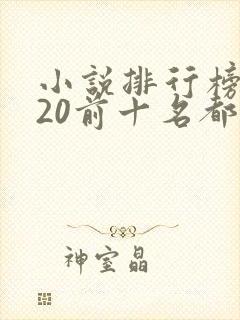 小説排行榜
20前十名都
神室晶